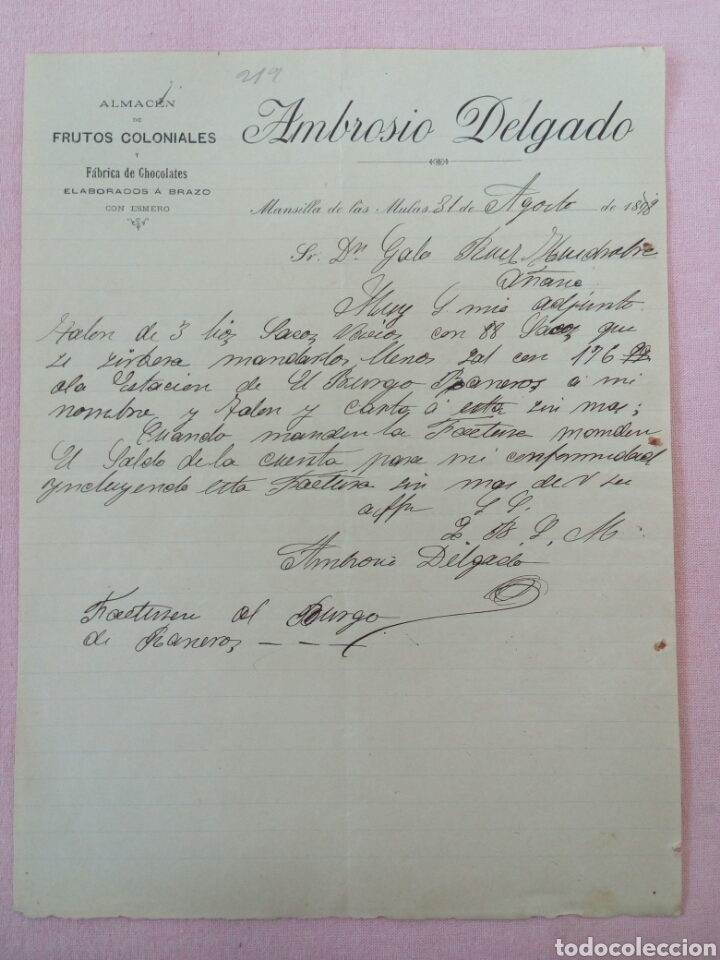 219
ALMACÉN
DE
FRUTOS COLONIALES
Y
Fábrica de Chocolates
ELABORADOS Á BRAZO
CON ESMERO
Ambrosio Delgado
Mansilla de las Mulas 31 de Agosto de 1898
Sr. Dn Galo Ruiz
Muy S. mio adjunto
talon de 3 lios Sacos Vacios con 88 Sacos que
se sirbera mandarlos llenos sal con 176
ala Estacion de El Burgo Raneros á mi
nombre y talon y carta á esta sin mas;
Cuando manden la Factura manden
El Saldo de la cuenta para mi conformidad
yncluyendo esta Factura sin mas de V su
affm S. S.
Q. B. S. M
Ambrosio Delgado
Facturen al Burgo
de Raneros - - -
todocoleccion